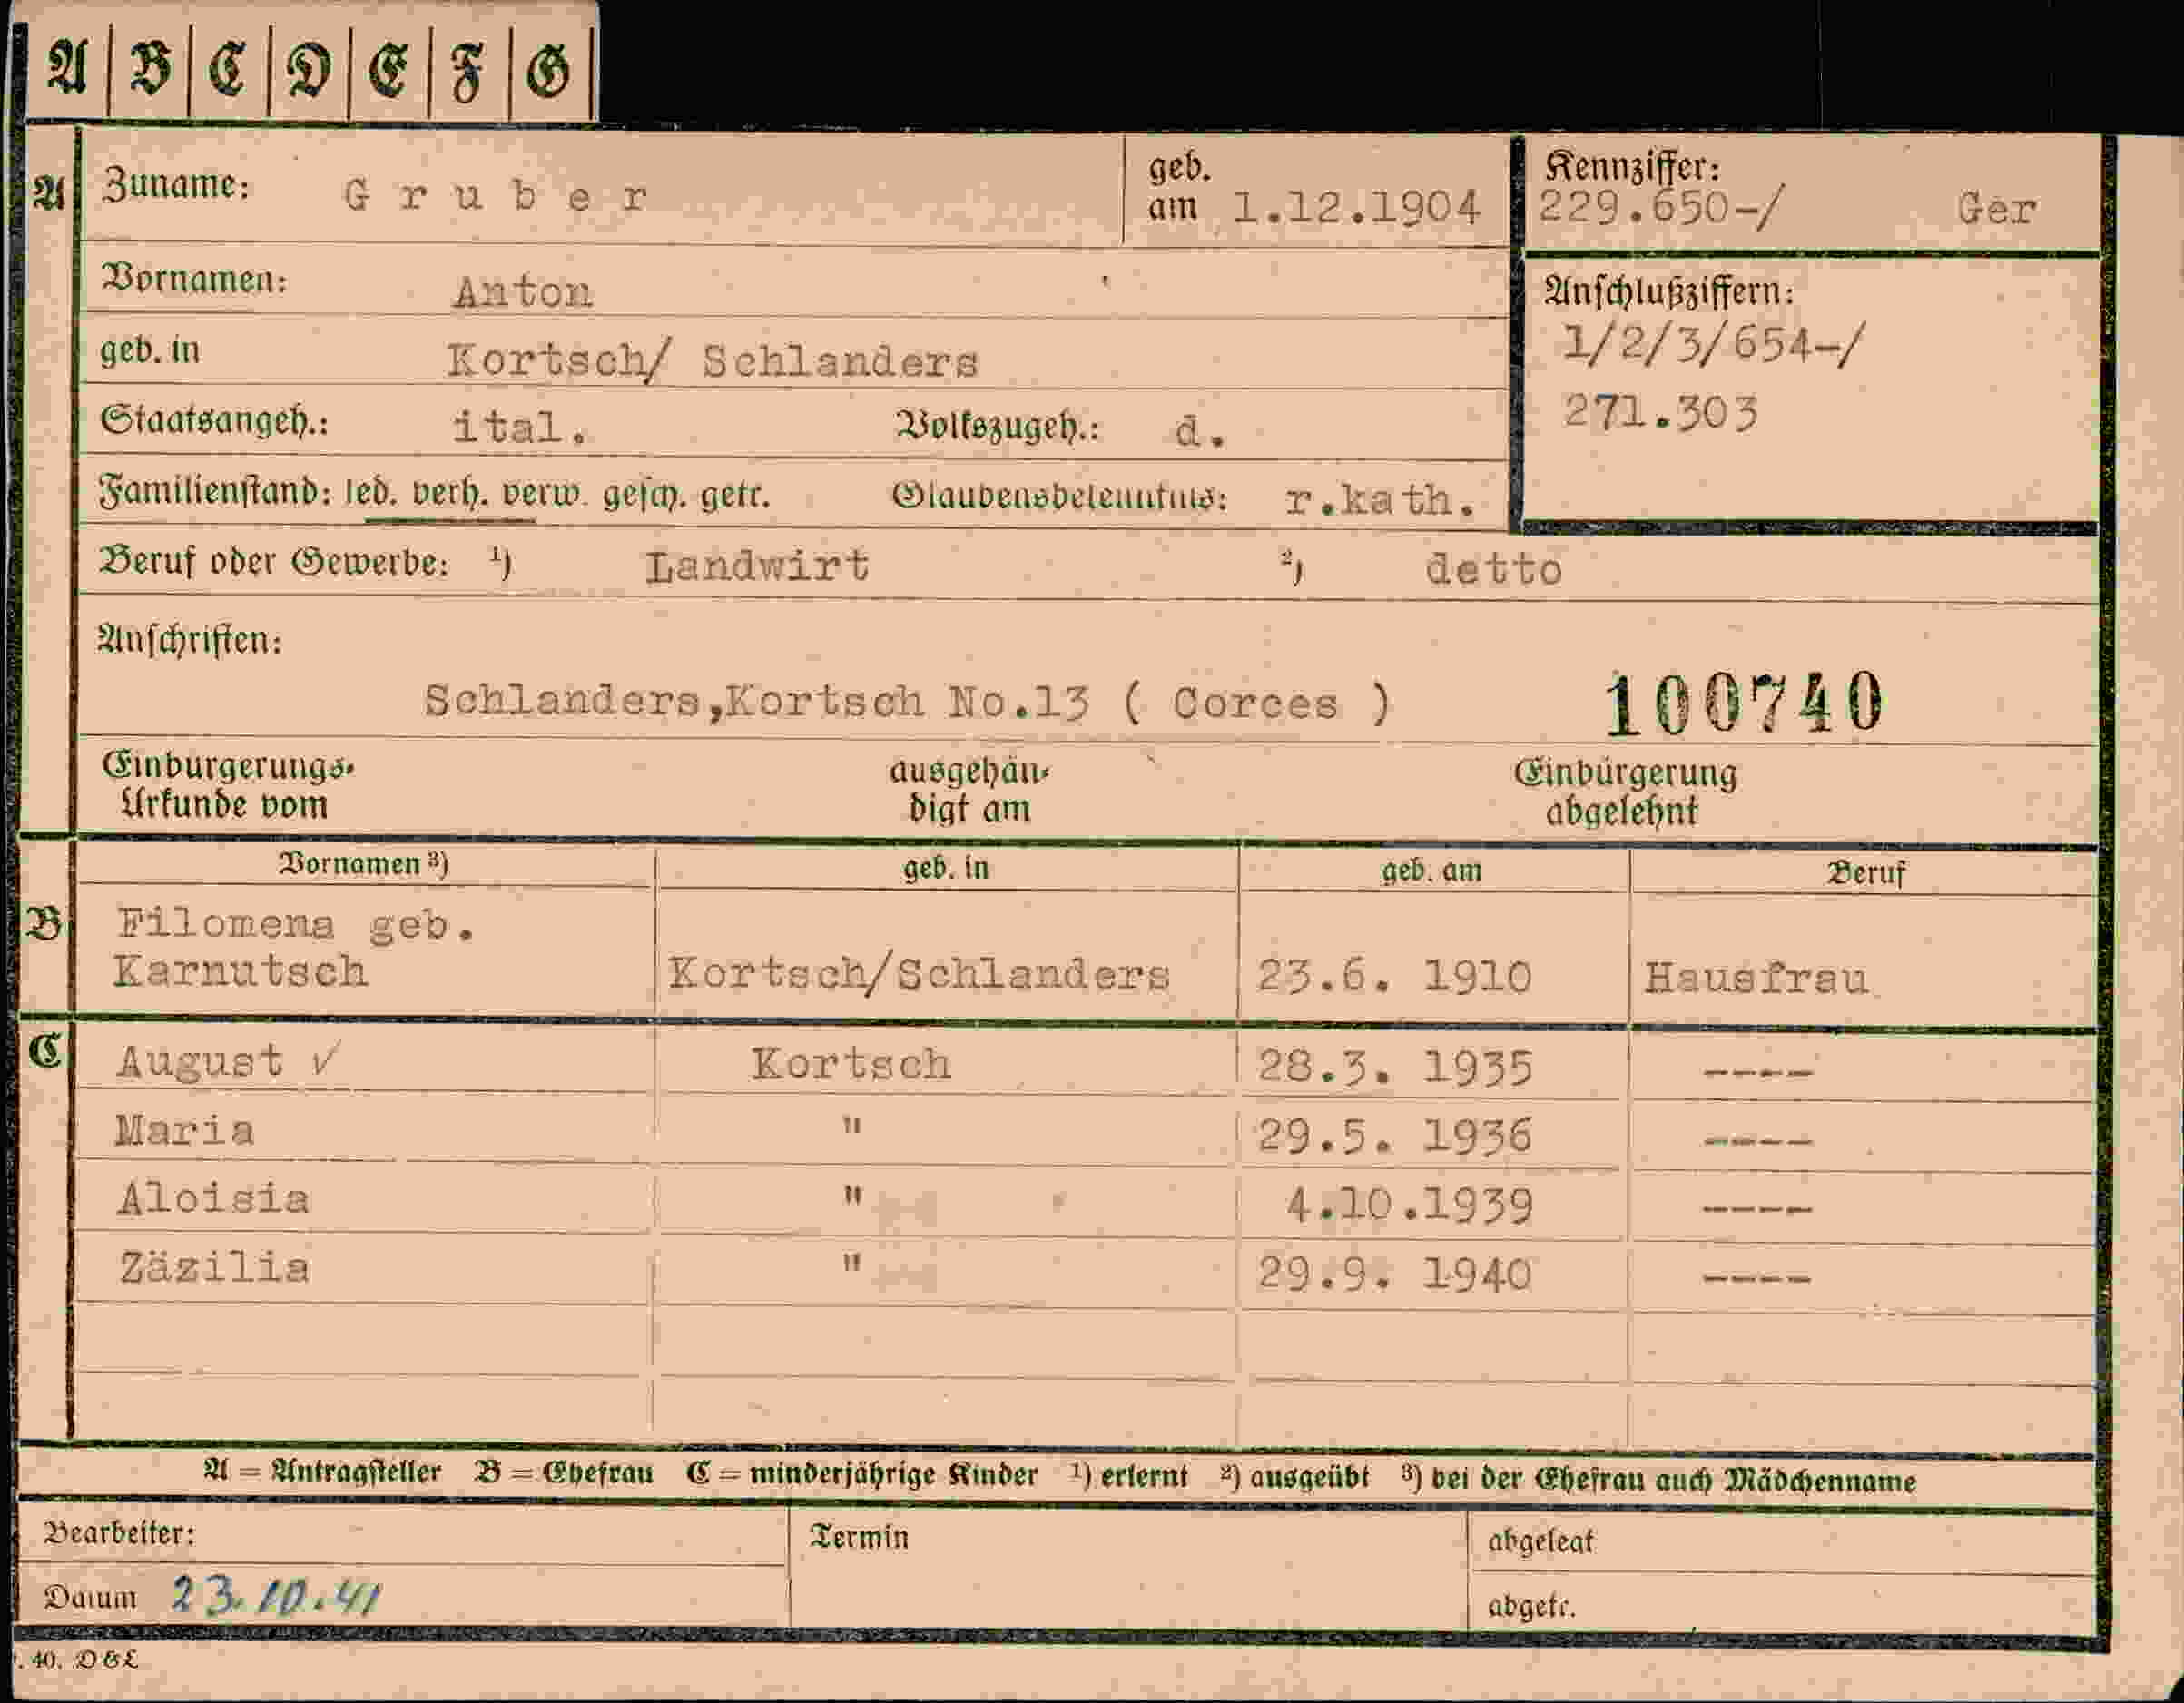 A | B | C | D | E | F | G
A Zuname: Gruber geb. am 1.12.1904 Kennziffer: 229.650-/ Ger
Vornamen: Anton Anschlußziffern:
geb. in Kortsch/ Schlanders 1/2/3/654-/
Staatsangeh.: ital. Volkszugeh.: d. 271.303
Familienstand: led. verh. verw. gesch. getr. Glaubensbekenntnis: r.kath.
Beruf oder Gewerbe: ¹) Landwirt ²) detto
Anschriften:
Schlanders,Kortsch No.13 ( Corces ) 100740
Einbürgerungs- ausgehän- Einbürgerung
Urkunde vom digt am abgelehnt
Vornamen ³) geb. in geb. am Beruf
B Filomena geb.
Karnutsch Kortsch/Schlanders 23.6. 1910 Hausfrau
C August ✓ Kortsch 28.3. 1935 ----
Maria " 29.5. 1936 ----
Aloisia " 4.10.1939 ----
Zäzilia " 29.9. 1940 ----
A = Antragsteller B = Ehefrau C = minderjährige Kinder ¹) erlernt ²) ausgeübt ³) bei der Ehefrau auch Mädchenname
Bearbeiter: Termin abgelegt
Datum 23.10.41 abgetr.
. 40. D&L